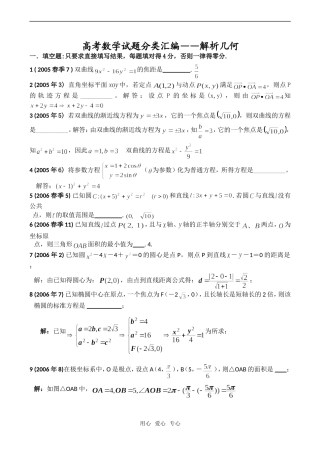 高考数学试题分类汇编——解析几何
一．填空题:只要求直接填写结果，每题填对得 4 分，否则一律得零分.
1 ( 2005 春季 7 ) 双曲线 9x²−16y²=1 的焦距是
2 (2005 年 3) 直角坐标平面 xoy 中，若定点 A(1,2) 与动点 P(x,y) 满足 OP·OA=4，则点 P
的 轨 迹 方 程 是 . 解 答 ： 设 点 P 的 坐 标 是 (x,y) ， 则 由 OP·OA=4 知
x+2y=4⇒x+2y−4=0
3 (2005 年 5) 若双曲线的渐近线方程为 y=±3x，它的一个焦点是 (√10,0)，则双曲线的方程
是 . 解答：由双曲线的渐近线方程为 y=±3x，知 b/a=3，它的一个焦点是 (√10,0)，
知 a²+b²=10，因此 a=1, b=3 双曲线的方程是 x²−y²/9=1
4 (2005 年 6) 将参数方程 {x=1+2cosθ y=2sinθ (θ 为参数)化为普通方程，所得方程是 .
解答： (x−1)²+y²=4
5 (2006 春季 5) 已知圆 C:(x+5)²+y²=r² (r>0) 和直线 l:3x+y+5=0. 若圆 C 与直线 l 没有
公共
点，则 r 的取值范围是 . (0, √10).
6 (2006 春季 11) 已知直线 l 过点 P(2, 1)，且与 x 轴、y 轴的正半轴分别交于 A、B 两点，O 为
坐标原
点，则三角形 OAB 面积的最小值为 . 4.
7 (2006 年 2) 已知圆 x²−4x−4+y²=0 的圆心是点 P，则点 P 到直线 x−y−1＝0 的距离是
；
解：由已知得圆心为： P(2,0)，由点到直线距离公式得： d=|2−0−1|/√(1+1)=√2/2；
8 (2006 年 7) 已知椭圆中心在原点，一个焦点为 F（－2√3，0），且长轴长是短轴长的 2 倍，则该
椭圆的标准方程是 ；
解：已知 {a=2b,c=2√3 a²−b²=c² F(−2√3,0) ⇒ {b²=4 a²=16 ⇒ x²/16+y²/4=1 为所求；
9 (2006 年 8)在极坐标系中，O 是极点，设点 A（4，π/3），B（5，－5π/6），则△OAB 的面积是 ；
解：如图△OAB 中, OA=4,OB=5,∠AOB=2π−(π/3−(−5π/6))=5π/6
用心 爱心 专心